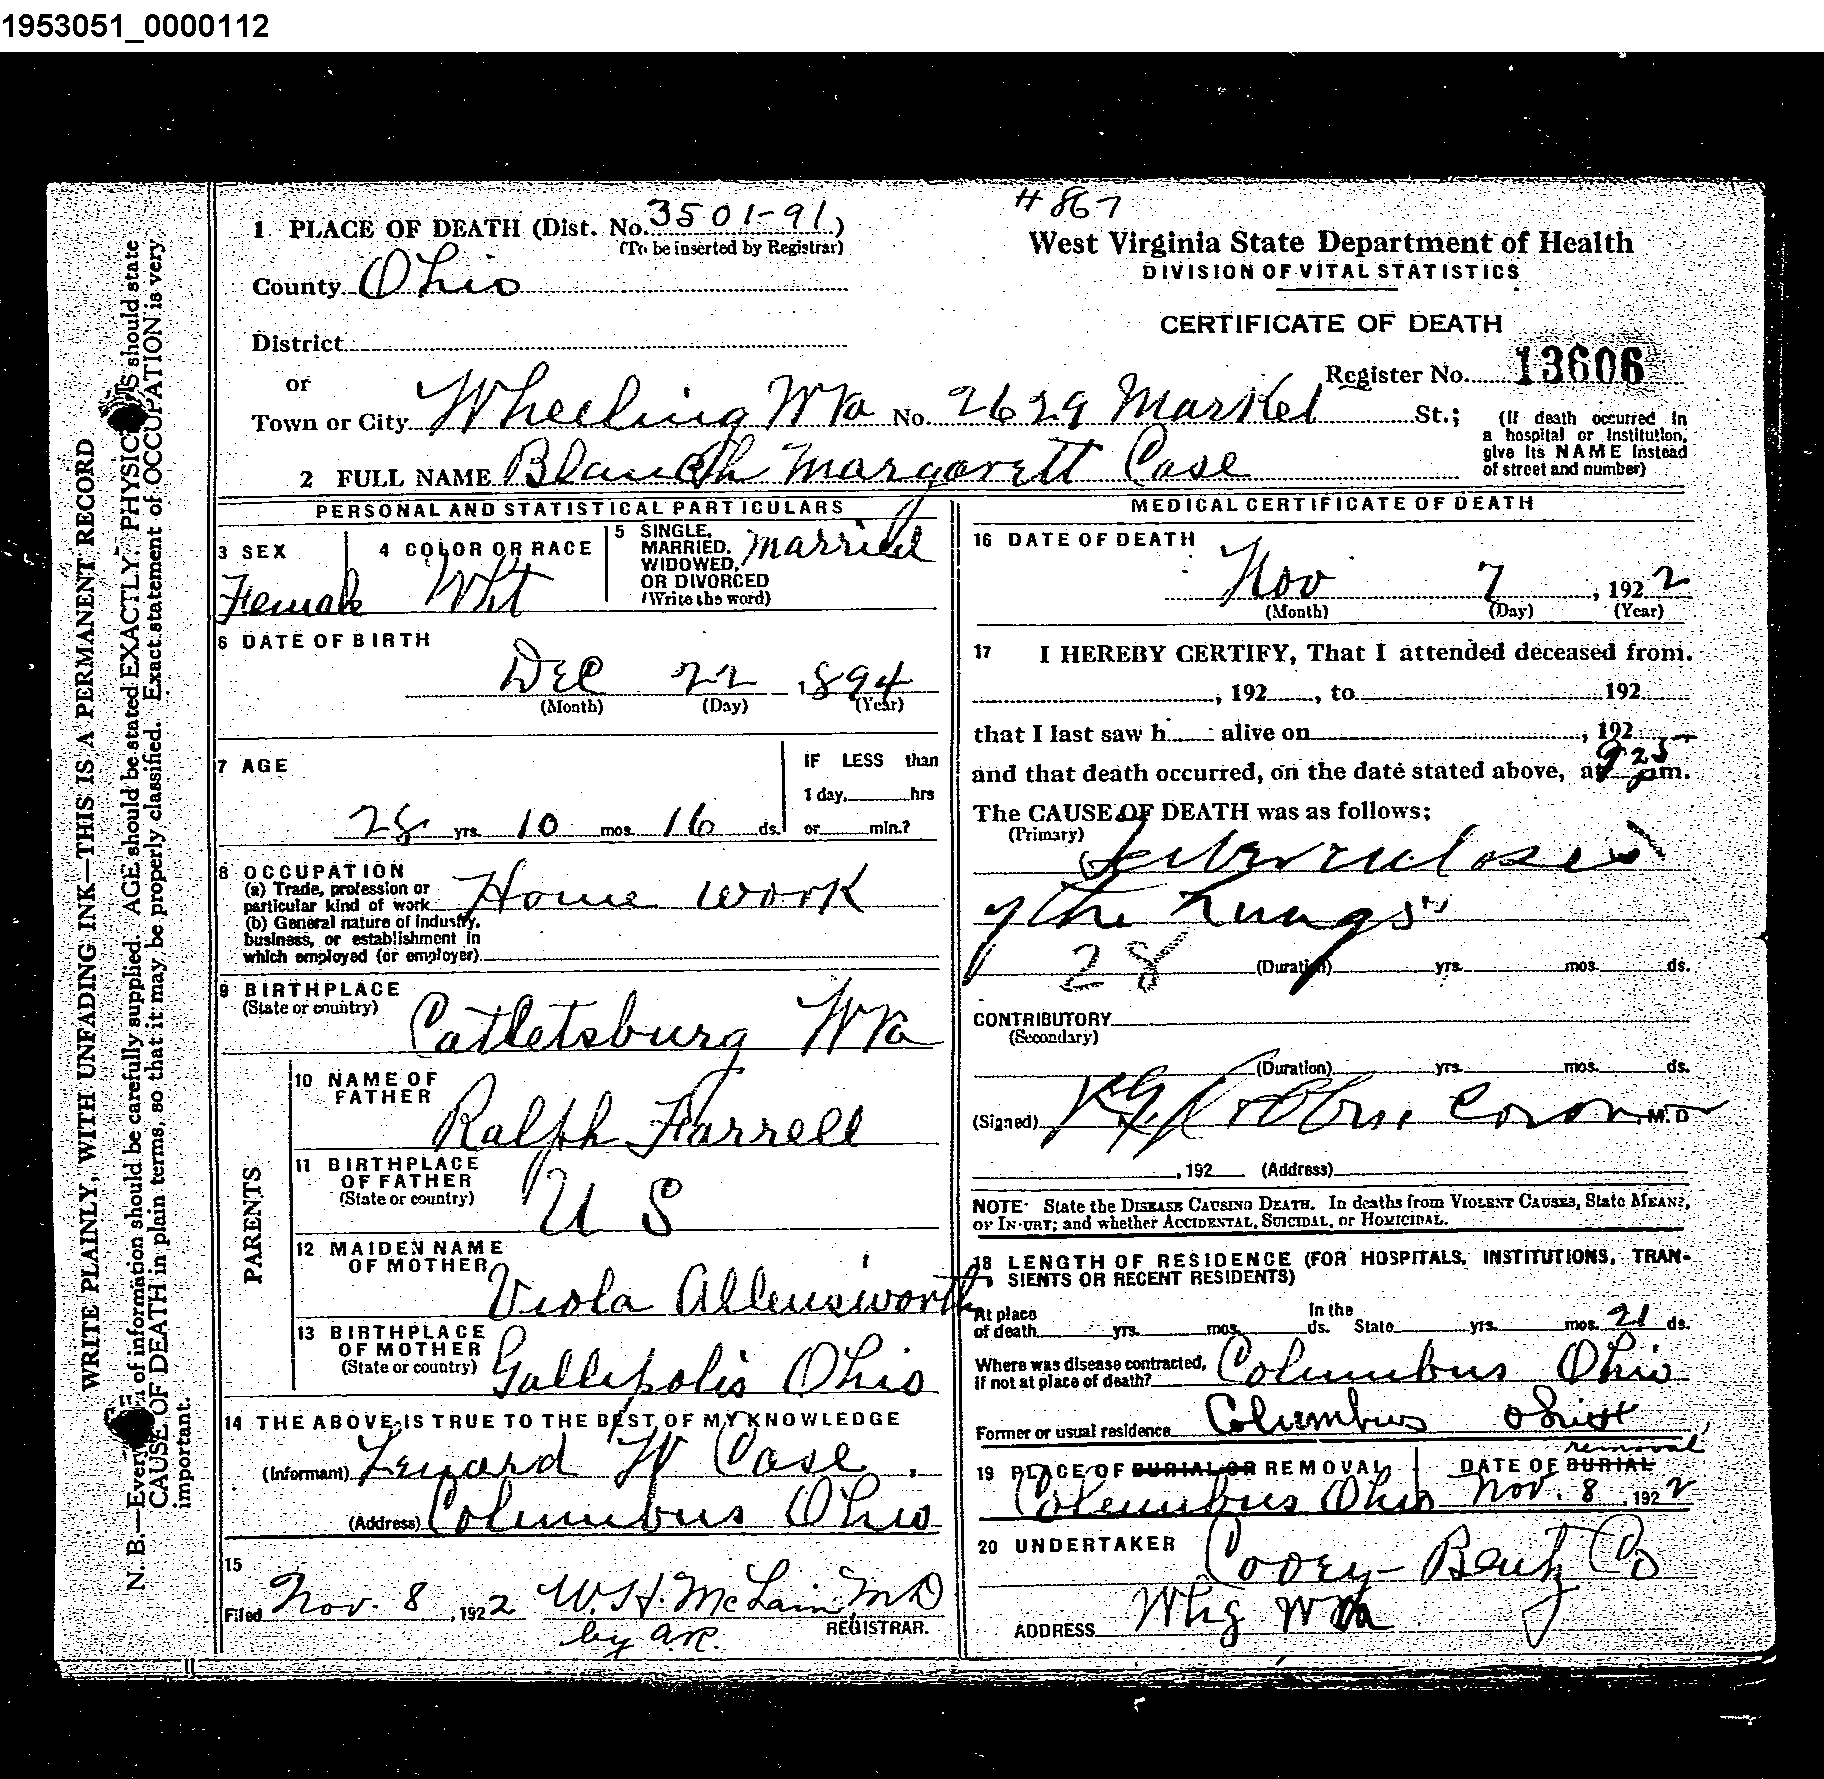 1953051_0000112
# 867
1 PLACE OF DEATH (Dist. No. 3501-91)
(To be inserted by Registrar)
West Virginia State Department of Health
DIVISION OF VITAL STATISTICS
County Ohio
CERTIFICATE OF DEATH
District
or
Register No. 13606
Town or City Wheeling WVa No. 2629 Market St.;
(If death occurred in
a hospital or Institution,
give its NAME Instead
of street and number)
2 FULL NAME Blanch Margarett Case
PERSONAL AND STATISTICAL PARTICULARS
3 SEX
Female
4 COLOR OR RACE
Wht
5 SINGLE,
MARRIED,
WIDOWED,
OR DIVORCED
(Write the word)
Married
6 DATE OF BIRTH
Dec 22 1894
(Month) (Day) (Year)
7 AGE
28 yrs. 10 mos. 16 ds.
IF LESS than
1 day, hrs
or min.?
8 OCCUPATION
(a) Trade, profession or
particular kind of work Home work
(b) General nature of Industry,
business, or establishment in
which employed (or employer)
9 BIRTHPLACE
(State or country)
Catletsburg WVa
PARENTS
10 NAME OF
FATHER
Ralph Farrell
11 BIRTHPLACE
OF FATHER
(State or country)
U S
12 MAIDEN NAME
OF MOTHER
Viola Allensworth
13 BIRTHPLACE
OF MOTHER
(State or country)
Gallipolis Ohio
14 THE ABOVE IS TRUE TO THE BEST OF MY KNOWLEDGE
(Informant) Lenard W Case
(Address) Columbus Ohio
15
Filed Nov. 8, 1922 W. H. McLain MD
by
REGISTRAR.
MEDICAL CERTIFICATE OF DEATH
16 DATE OF DEATH
Nov 7, 1922
(Month) (Day) (Year)
17 I HEREBY CERTIFY, That I attended deceased from.
, 192 , to 192
that I last saw h alive on , 192
and that death occurred, on the date stated above, at 9 25 pm.
The CAUSE OF DEATH was as follows;
(Primary)
Tuberculosis
of the Lungs
28
(Duration) yrs. mos. ds.
CONTRIBUTORY
(Secondary)
(Duration) yrs. mos. ds.
(Signed) Coroner M. D
, 192 (Address)
NOTE- State the DISEASE CAUSING DEATH. In deaths from VIOLENT CAUSES, State MEANS,
OF INJURY; and whether ACCIDENTAL, SUICIDAL, or HOMICIDAL.
18 LENGTH OF RESIDENCE (FOR HOSPITALS, INSTITUTIONS, TRAN-
SIENTS OR RECENT RESIDENTS)
At place
of death yrs. mos. ds.
In the
State yrs. mos. 21 ds.
Where was disease contracted,
if not at place of death? Columbus Ohio
Former or usual residence Columbus
19 PLACE OF BURIAL OR REMOVAL
Columbus Ohio
removal
DATE OF BURIAL
Nov. 8, 1922
20 UNDERTAKER Cooey-Bentz Co
ADDRESS Whg WVa
WRITE PLAINLY, WITH UNFADING INK—THIS IS A PERMANENT RECORD
N. B.—Every of information should be carefully supplied. AGE should be stated EXACTLY. PHYSIC should state
CAUSE OF DEATH in plain terms, so that it may be properly classified. Exact statement of OCCUPATION is very
important.